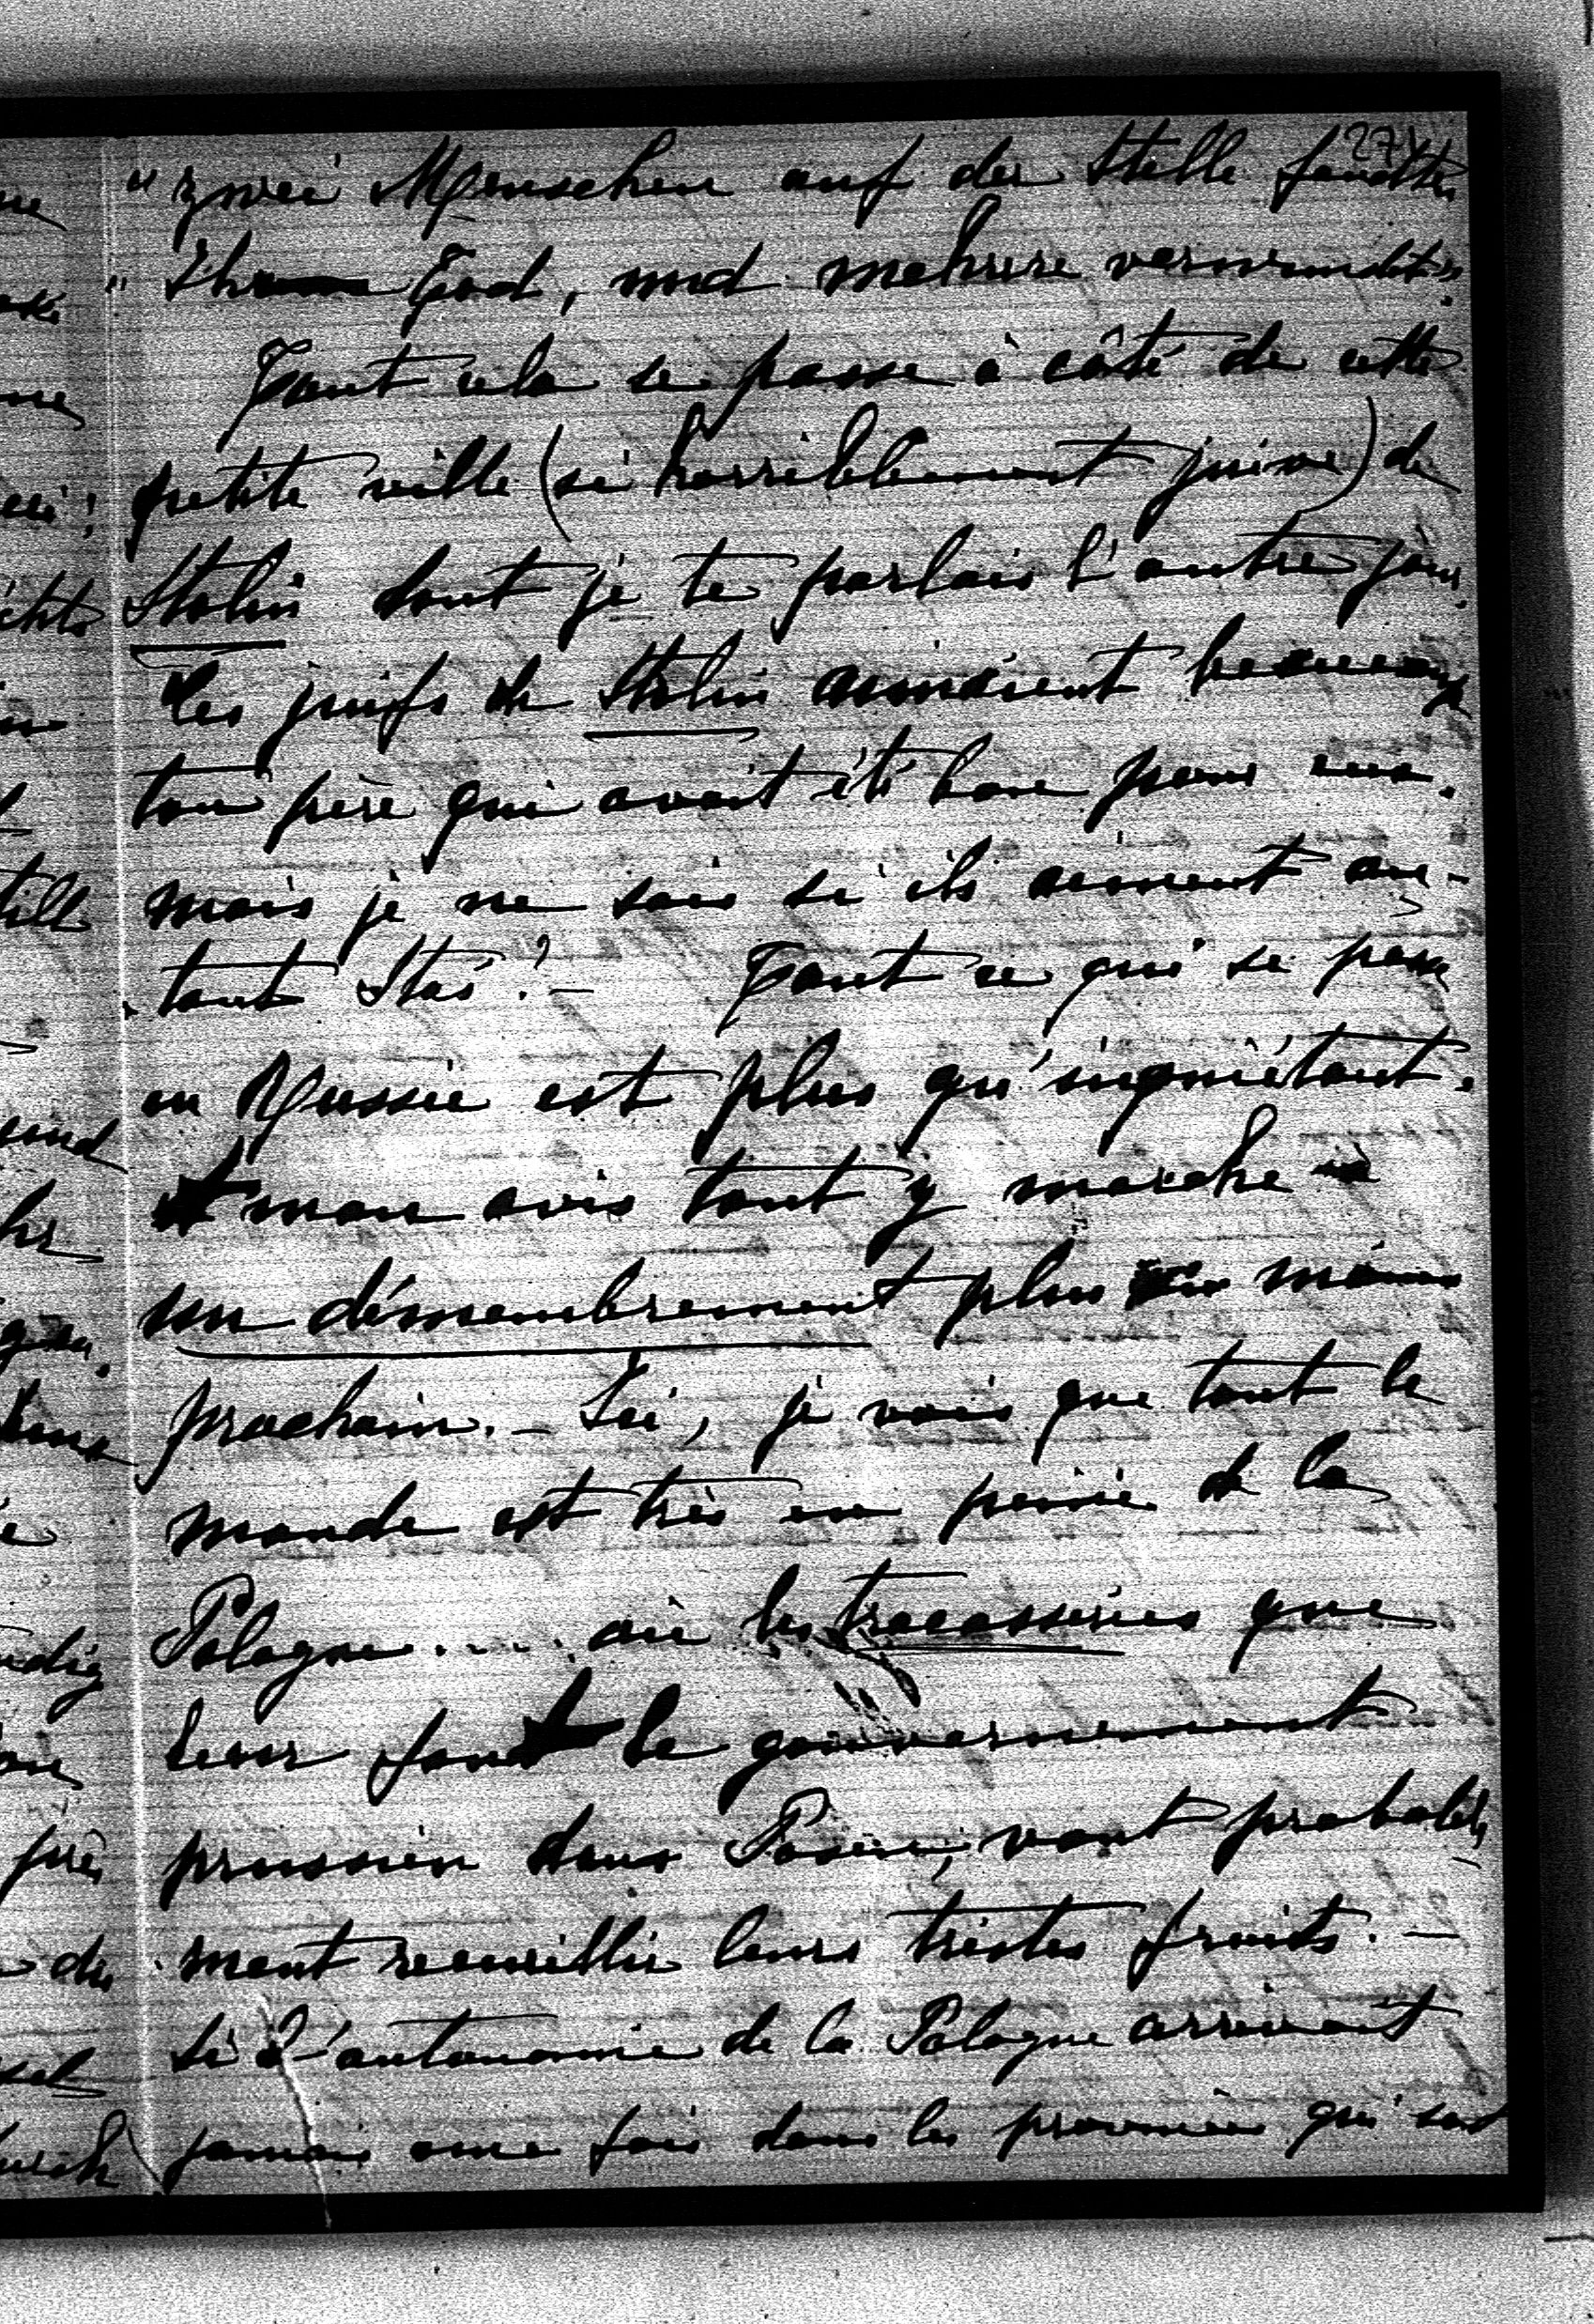 274
"zwei Menschen auf der Stelle fanden
"Ihren Tod, und mehrere verwundet".
Tout cela se passe à côté de cette
petite ville (si horriblement juive) de
Stolin dont je te parlais l'autre jour.
Les juifs de Stolin aimaient beaucoup
ton père qui avait été bon pour eux.
mais je ne sais si ils aiment au-
tant Stas? – Tout ce qui se passe
en Russie est plus qu'inquiétant.
A mon avis tout y marche à
un démembrement plus ou moins
prochain. – Ici, je vois que tout le
monde est très en peine de la
Pologne..... où les tracasseries que
leur font le gouvernement
prussien dans Posen, vont probable-
ment recueillir leurs tristes fruits. –
Si l'autonomie de la Pologne arrivait
jamais une fois dans les provinces qui sont